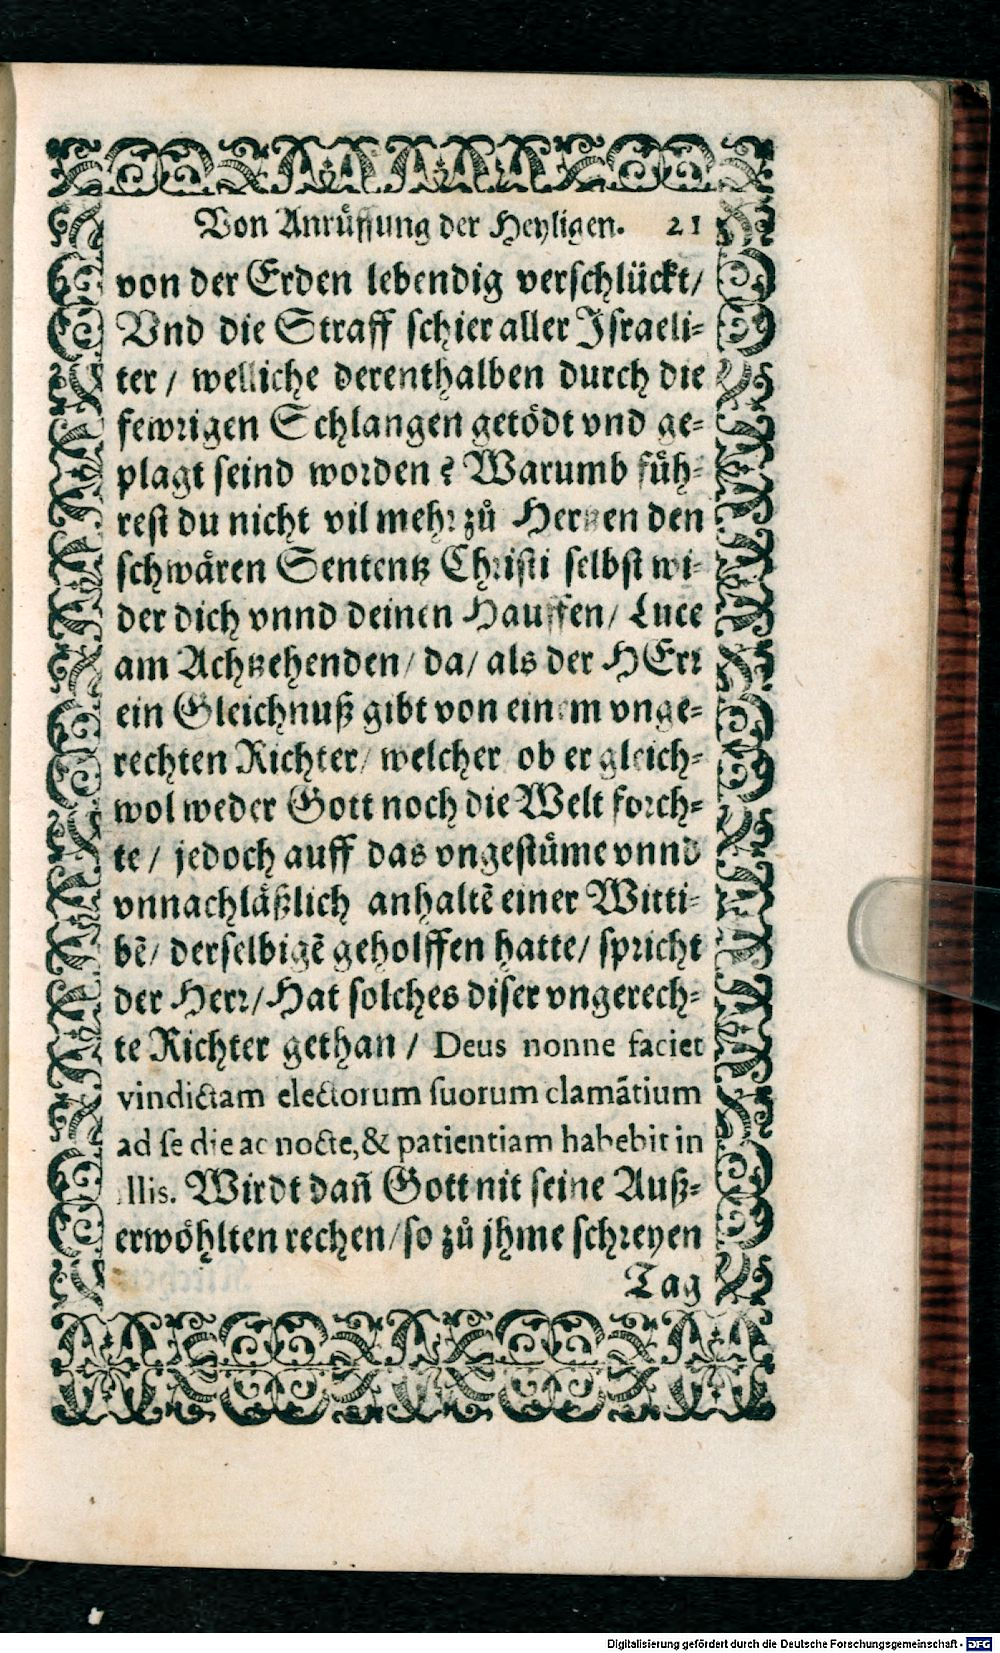 Von Anrůffung der Heyligen. 21
von der Erden lebendig verschlückt/
Vnd die Straff schier aller Israeli-
ter / welliche derenthalben durch die
fewrigen Schlangen getödt vnd ge-
plagt seind worden? Warumb fůh-
rest du nicht vil mehr zů Hertzen den
schwären Sententz Christi selbst wi-
der dich vnnd deinen Hauffen/ Luce
am Achtzehenden/ da/ als der HErr
ein Gleichnuß gibt von einem vnge-
rechten Richter/ welcher ob er gleich-
wol weder Gott noch die Welt forch-
te / jedoch auff das vngestůme vnnd
vnnachläßlich anhaltē einer Witti-
bē/ derselbigē geholffen hatte/ spricht
der Herr/ Hat solches diser vngerech-
te Richter gethan / Deus nonne faciet
vindictam electorum suorum clamātium
ad se die ac nocte, & patientiam habebit in
illis. Wirdt dañ Gott nit seine Auß-
erwöhlten rechen/ so zů jhme schreyen
Tag
Digitalisierung gefördert durch die Deutsche Forschungsgemeinschaft - DFG